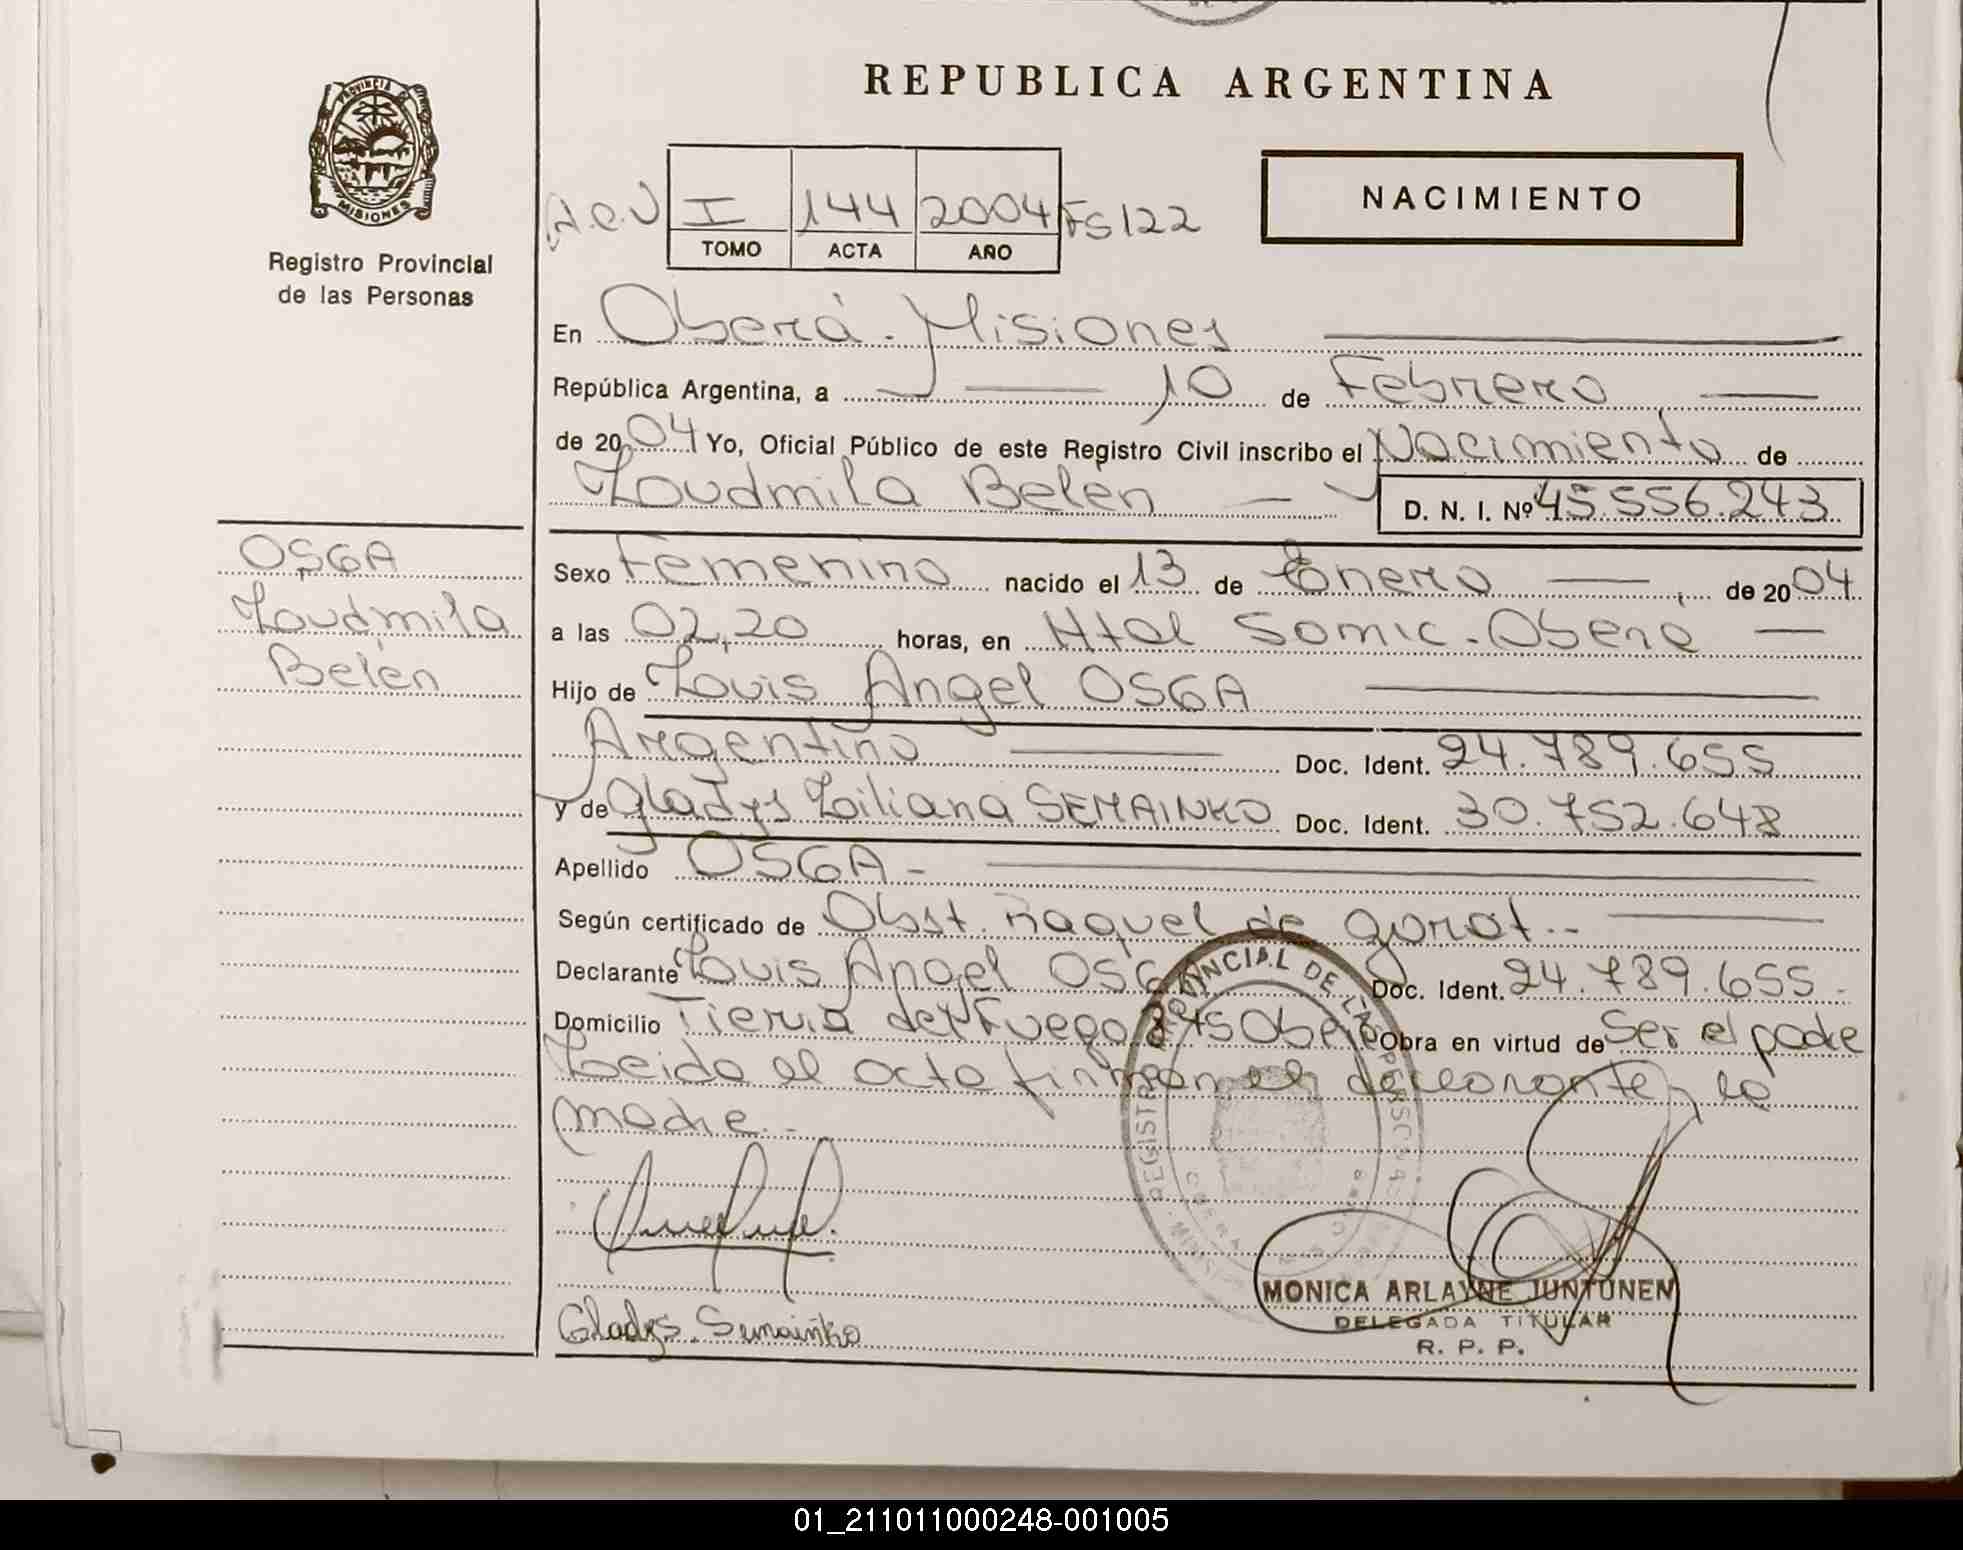 REPUBLICA ARGENTINA
PROVINCIA DE
MISIONES
Registro Provincial
de las Personas
NACIMIENTO
I 144 2004 Fs 122
TOMO ACTA AÑO
En Oberá - Misiones
República Argentina, a 10 de Febrero
de 2004 Yo, Oficial Público de este Registro Civil inscribo el Nacimiento de
Loudmila Belén D. N. I. Nº 45.556.243
OSGA
Loudmila
Belén
Sexo Femenino nacido el 13 de Enero de 2004
a las 02,20 horas, en Htal Samic - Oberá
Hijo de Louis Angel OSGA
Argentino Doc. Ident. 24.789.655
y de Gladys Liliana SEMAINKO Doc. Ident. 30.752.648
Apellido OSGA -
Según certificado de Obst. Raquel de
Declarante Louis Angel OSGA Doc. Ident. 24.789.655 -
Domicilio Tierra del Fuego 845 Oberá Obra en virtud de Ser el padre
Leida el acta firman el declarante y la
madre.-
REGISTRO PROVINCIAL DE LAS PERSONAS
Gladys Semainko
MONICA ARLAYNE JUNTUNEN
DELEGADA TITULAR
R. P. P.
01_211011000248-001005